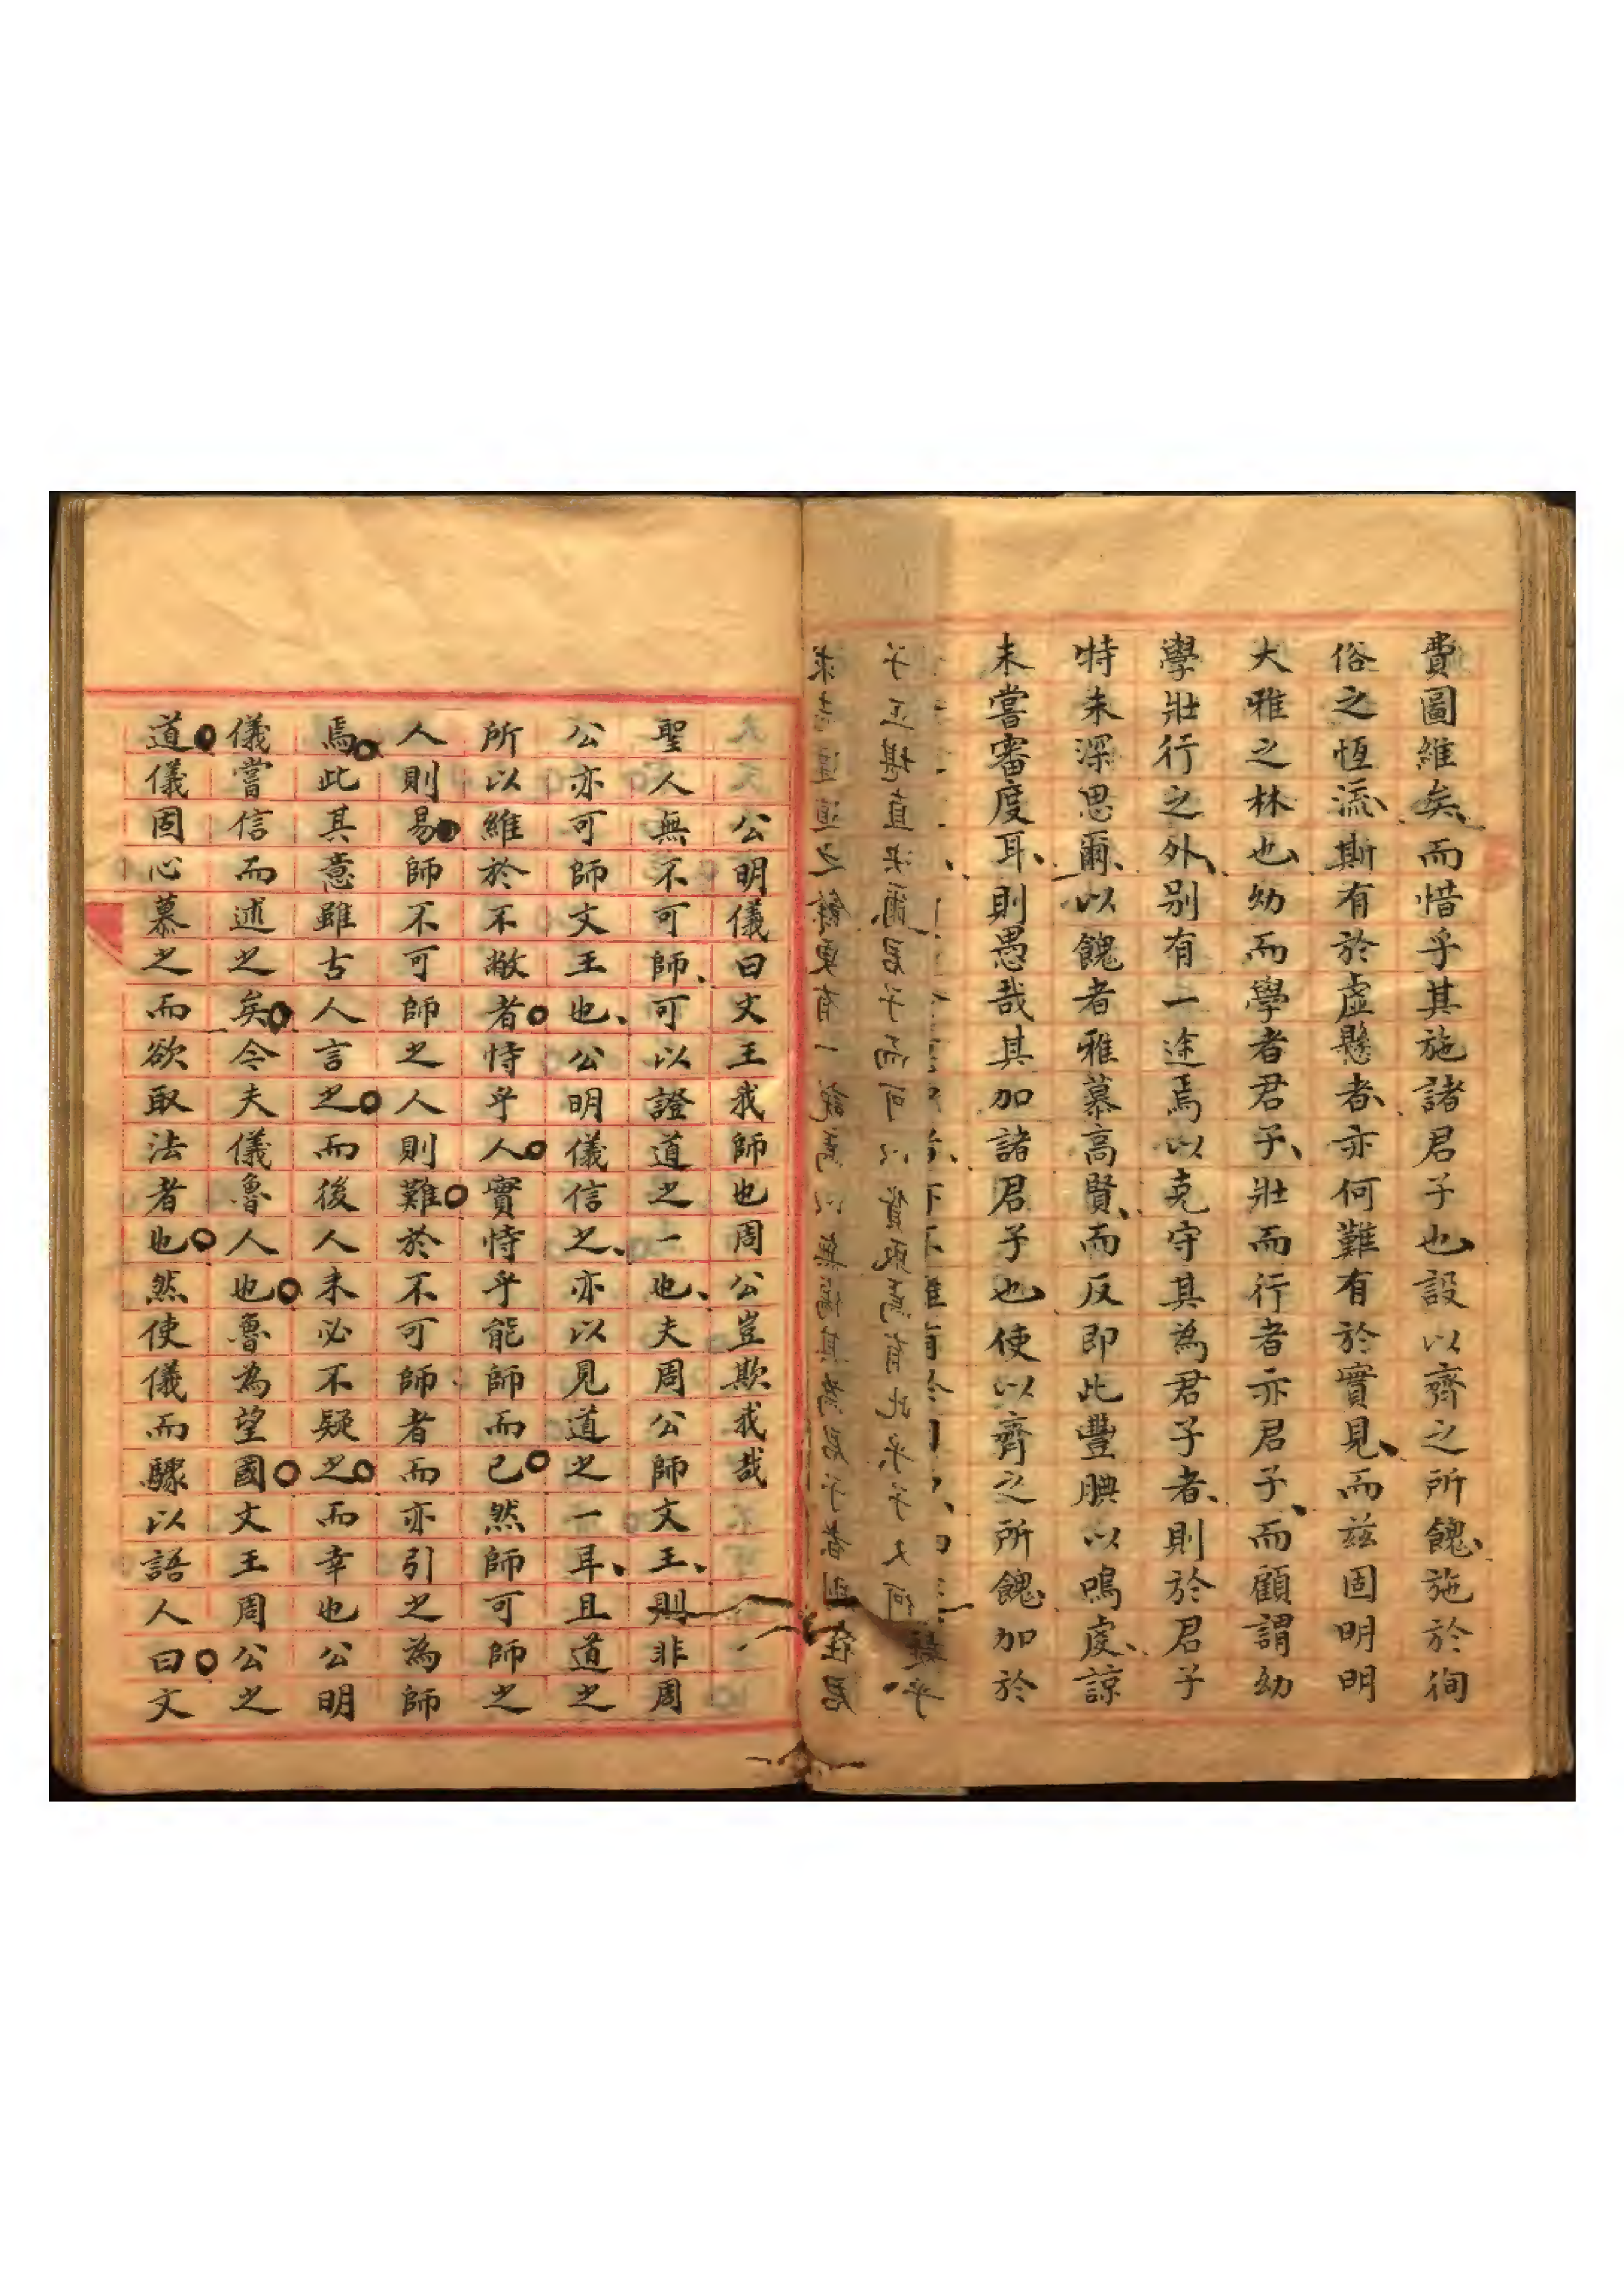 費圖維矣而惜乎其施諸君子也設以齊之所餽施於徇
俗之恆流斯有於虛懸者亦何難有於實見而茲固明明
大雅之林也幼而學者君子壯而行者亦君子而顧謂幼
學壯行之外別有一途焉以克守其為君子者則於君子
特未深思爾以餽者雅慕高賢而反即此豐腆以鳴虔諒
未嘗審度耳則愚哉其加諸君子也使以齊之所餽加於
公明儀曰文王我師也周公豈欺我哉
聖人無不可師可以證道之一也夫周公師文王則非周
公亦可師文王也公明儀信之亦以見道之一耳且道之
所以維於不敝者恃乎人實恃乎能師而已然師可師之
人則易師不可師之人則難於不可師者而亦引之為師
焉此其意雖古人言之而後人未必不疑之而幸也公明
儀嘗信而述之矣今夫儀魯人也魯為望國文王周公之
道儀固心慕之而欲取法者也然使儀而驟以語人曰文